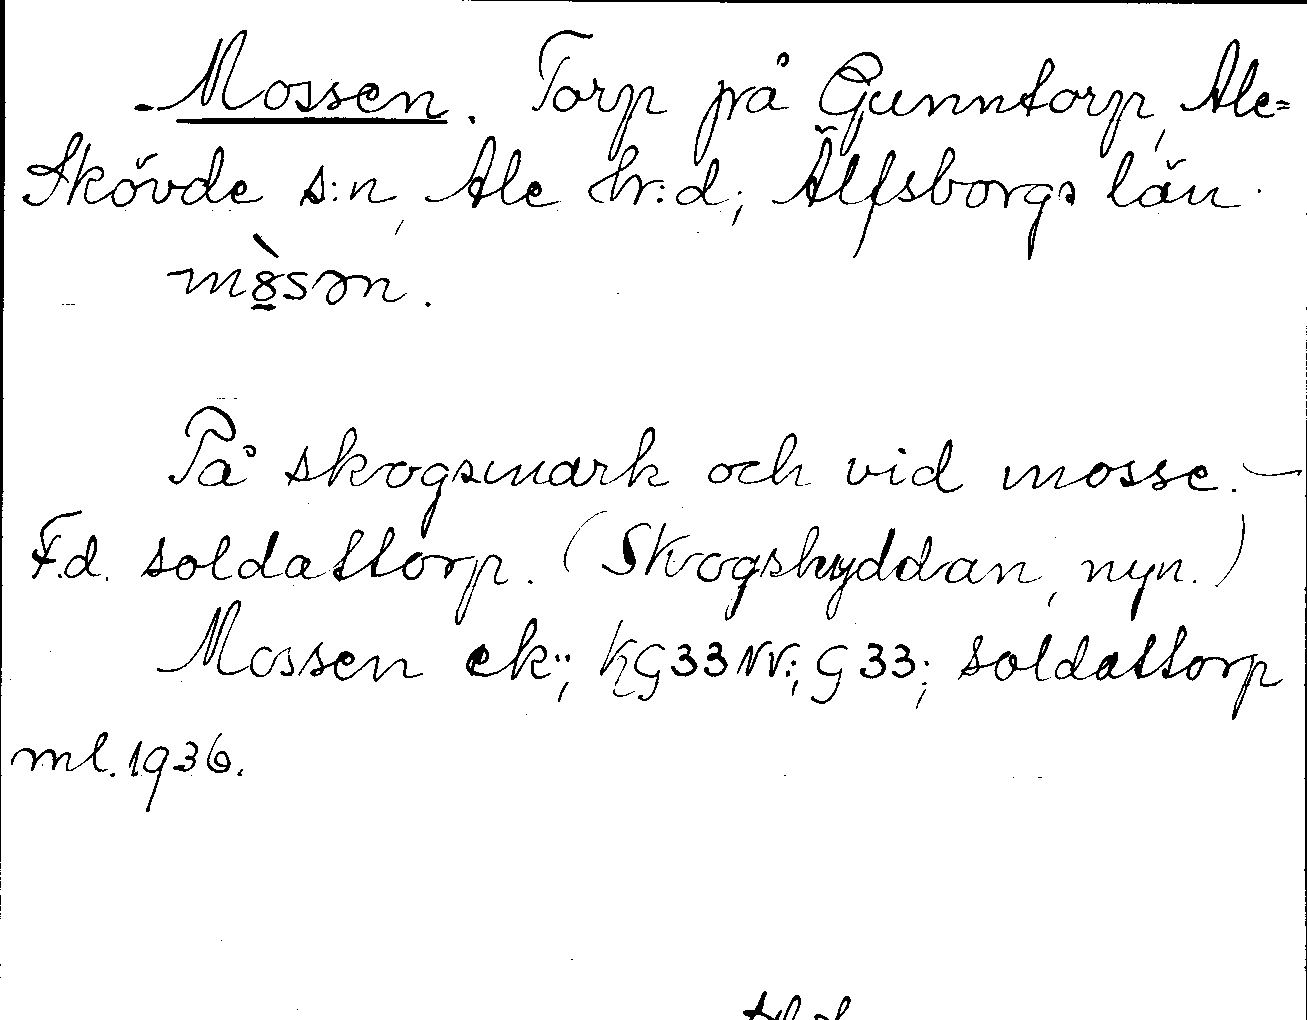 -Mossen. Torp på Gunntorp, Ale=
Skövde s:n, Ale hr:d, Älfsborgs län.
mòsən.
På skogsmark och vid mosse. —
F.d. soldattorp. (Skogshyddan, nyn.)
Mossen ek:; KG33NV:; G33; soldattorp
ml. 1936.